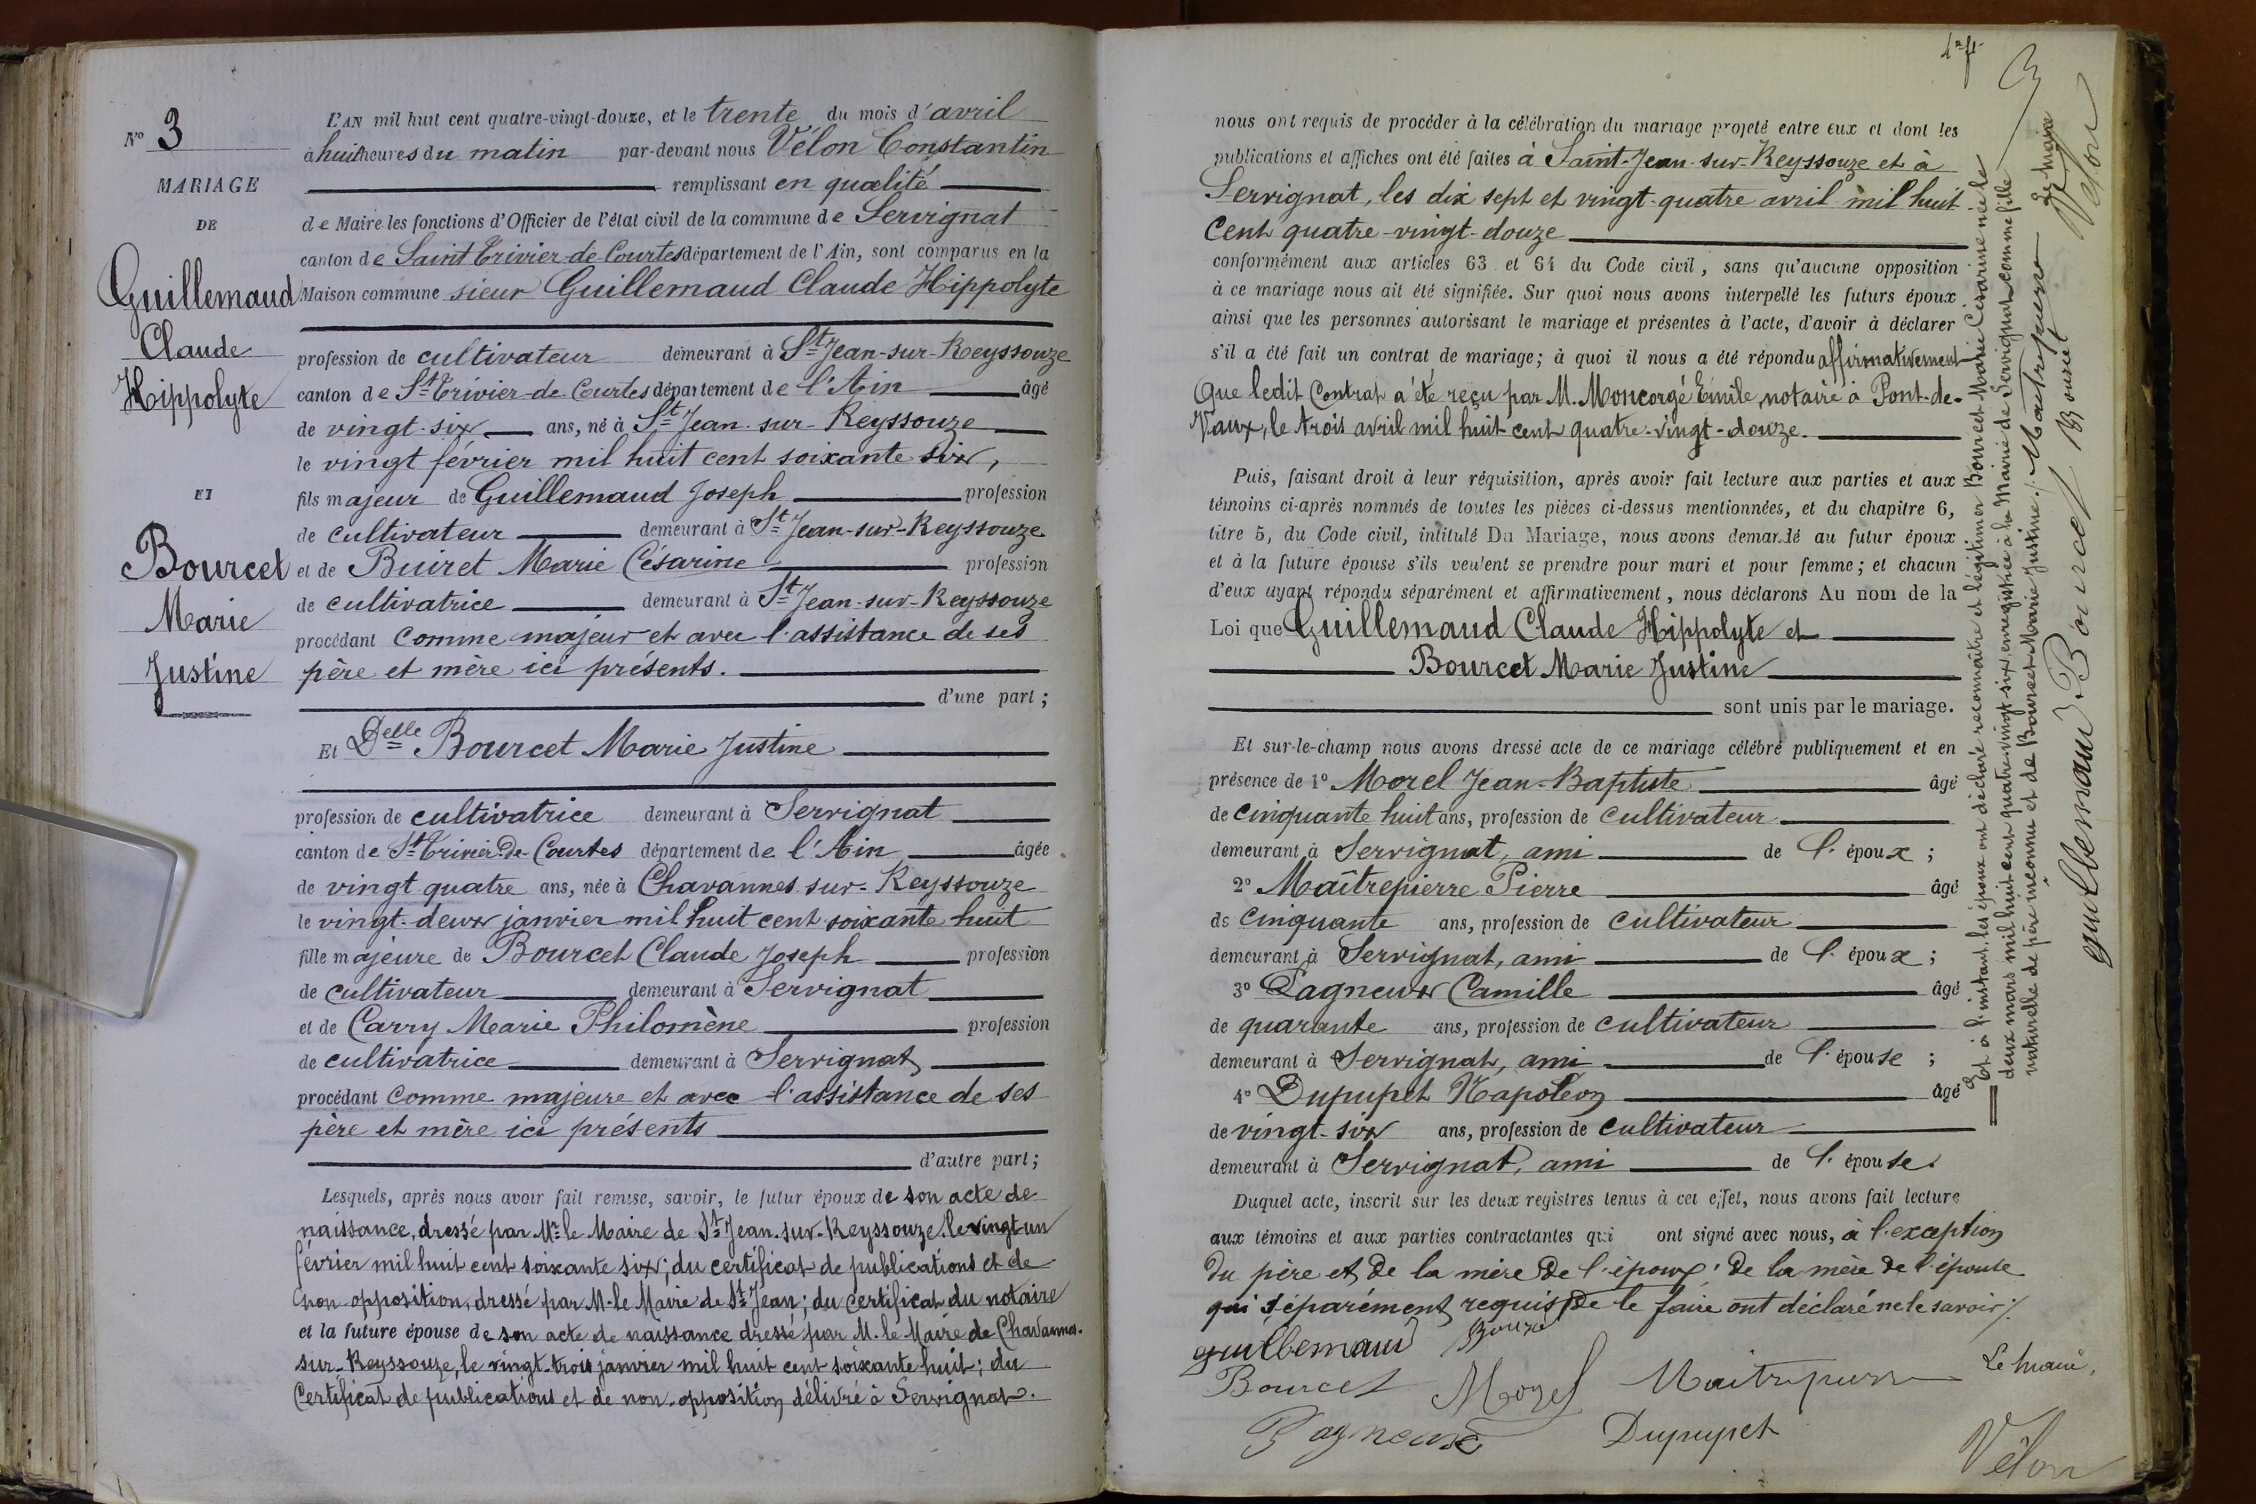 N° 3
MARIAGE
DE
Guillemaud
Claude
Hippolyte
ET
Bourcet
Marie
Justine
L'AN mil huit cent quatre-vingt-douze, et le trente du mois d'avril
à huit heures du matin par-devant nous Vélon Constantin
remplissant en qualité
de Maire les fonctions d'Officier de l'état civil de la commune de Servignat
canton de Saint Trivier-de-Courtes département de l'Ain, sont comparus en la
Maison commune sieur Guillemaud Claude Hippolyte
profession de cultivateur demeurant à St Jean-sur-Reyssouze
canton de St Trivier-de-Courtes département de l'Ain âgé
de vingt-six ans, né à St Jean-sur-Reyssouze
le vingt février mil huit cent soixante six,
fils majeur de Guillemaud Joseph profession
de cultivateur demeurant à St Jean-sur-Reyssouze
et de Buiret Marie Césarine profession
de cultivatrice demeurant à St Jean-sur-Reyssouze
procédant comme majeur et avec l'assistance de ses
père et mère ici présents.
d'une part;
Et Delle Bourcet Marie Justine
profession de cultivatrice demeurant à Servignat
canton de St Trivier-de-Courtes département de l'Ain âgée
de vingt quatre ans, née à Chavannes-sur-Reyssouze
le vingt-deux janvier mil huit cent soixante huit
fille majeure de Bourcet Claude Joseph profession
de cultivateur demeurant à Servignat
et de Carry Marie Philomène profession
de cultivatrice demeurant à Servignat
procédant comme majeure et avec l'assistance de ses
père et mère ici présents
d'autre part;
Lesquels, après nous avoir fait remise, savoir, le futur époux de son acte de
naissance, dressé par Mr le Maire de St Jean-sur-Reyssouze, le vingt un
février mil huit cent soixante six; du certificat de publications et de
non-opposition, dressé par M. le Maire de St Jean; du certificat du notaire
et la future épouse de son acte de naissance dressé par M. le Maire de Chavannes-
sur-Reyssouze, le vingt-trois janvier mil huit cent soixante huit; du
Certificat de publications et de non-opposition délivré à Servignat.
nous ont requis de procéder à la célébration du mariage projeté entre eux et dont les
publications et affiches ont été faites à Saint-Jean-sur-Reyssouze et à
Servignat, les dix sept et vingt-quatre avril mil huit
Cent quatre-vingt-douze
conformément aux articles 63 et 64 du Code civil, sans qu'aucune opposition
à ce mariage nous ait été signifiée. Sur quoi nous avons interpellé les futurs époux
ainsi que les personnes autorisant le mariage et présentes à l'acte, d'avoir à déclarer
s'il a été fait un contrat de mariage; à quoi il nous a été répondu affirmativement
Que ledit Contrat a été reçu par M. Moncorgé Emile, notaire à Pont-de-
Vaux, le trois avril mil huit cent quatre-vingt-douze.
Puis, faisant droit à leur réquisition, après avoir fait lecture aux parties et aux
témoins ci-après nommés de toutes les pièces ci-dessus mentionnées, et du chapitre 6,
titre 5, du Code civil, intitulé Du Mariage, nous avons demandé au futur époux
et à la future épouse s'ils veulent se prendre pour mari et pour femme; et chacun
d'eux ayant répondu séparément et affirmativement, nous déclarons Au nom de la
Loi que Guillemaud Claude Hippolyte et
Bourcet Marie Justine
sont unis par le mariage.
Et sur-le-champ nous avons dressé acte de ce mariage célébré publiquement et en
présence de 1° Morel Jean-Baptiste âgé
de cinquante huit ans, profession de cultivateur
demeurant à Servignat, ami de l'époux;
2° Maîtrepierre Pierre âgé
de cinquante ans, profession de cultivateur
demeurant à Servignat, ami de l'époux;
3° Pagneux Camille âgé
de quarante ans, profession de cultivateur
demeurant à Servignat, ami de l'épouse;
4° Dupupet Napoléon âgé
de vingt-six ans, profession de cultivateur
demeurant à Servignat, ami de l'épouse.
Duquel acte, inscrit sur les deux registres tenus à cet effet, nous avons fait lecture
aux témoins et aux parties contractantes qui ont signé avec nous, à l'exception
du père et de la mère de l'époux; de la mère de l'épouse
qui séparément requis de le faire ont déclaré ne le savoir ./.
guillemaud
Bourcet
Bourcet Morel Maitrepierre Le maire,
Pagneux Dupupet Vélon
Et à l'instant, les époux ont déclaré reconnaître et légitimer Bourcet Marie Césarine née le
deux mars mil huit cent quatre-vingt-six, enregistrée à la Mairie de Servignat, comme fille
naturelle de père inconnu et de Bourcet Marie Justine ./. Maitrepierre Le maire
guillemaud Bourcet Bourcet Vélon